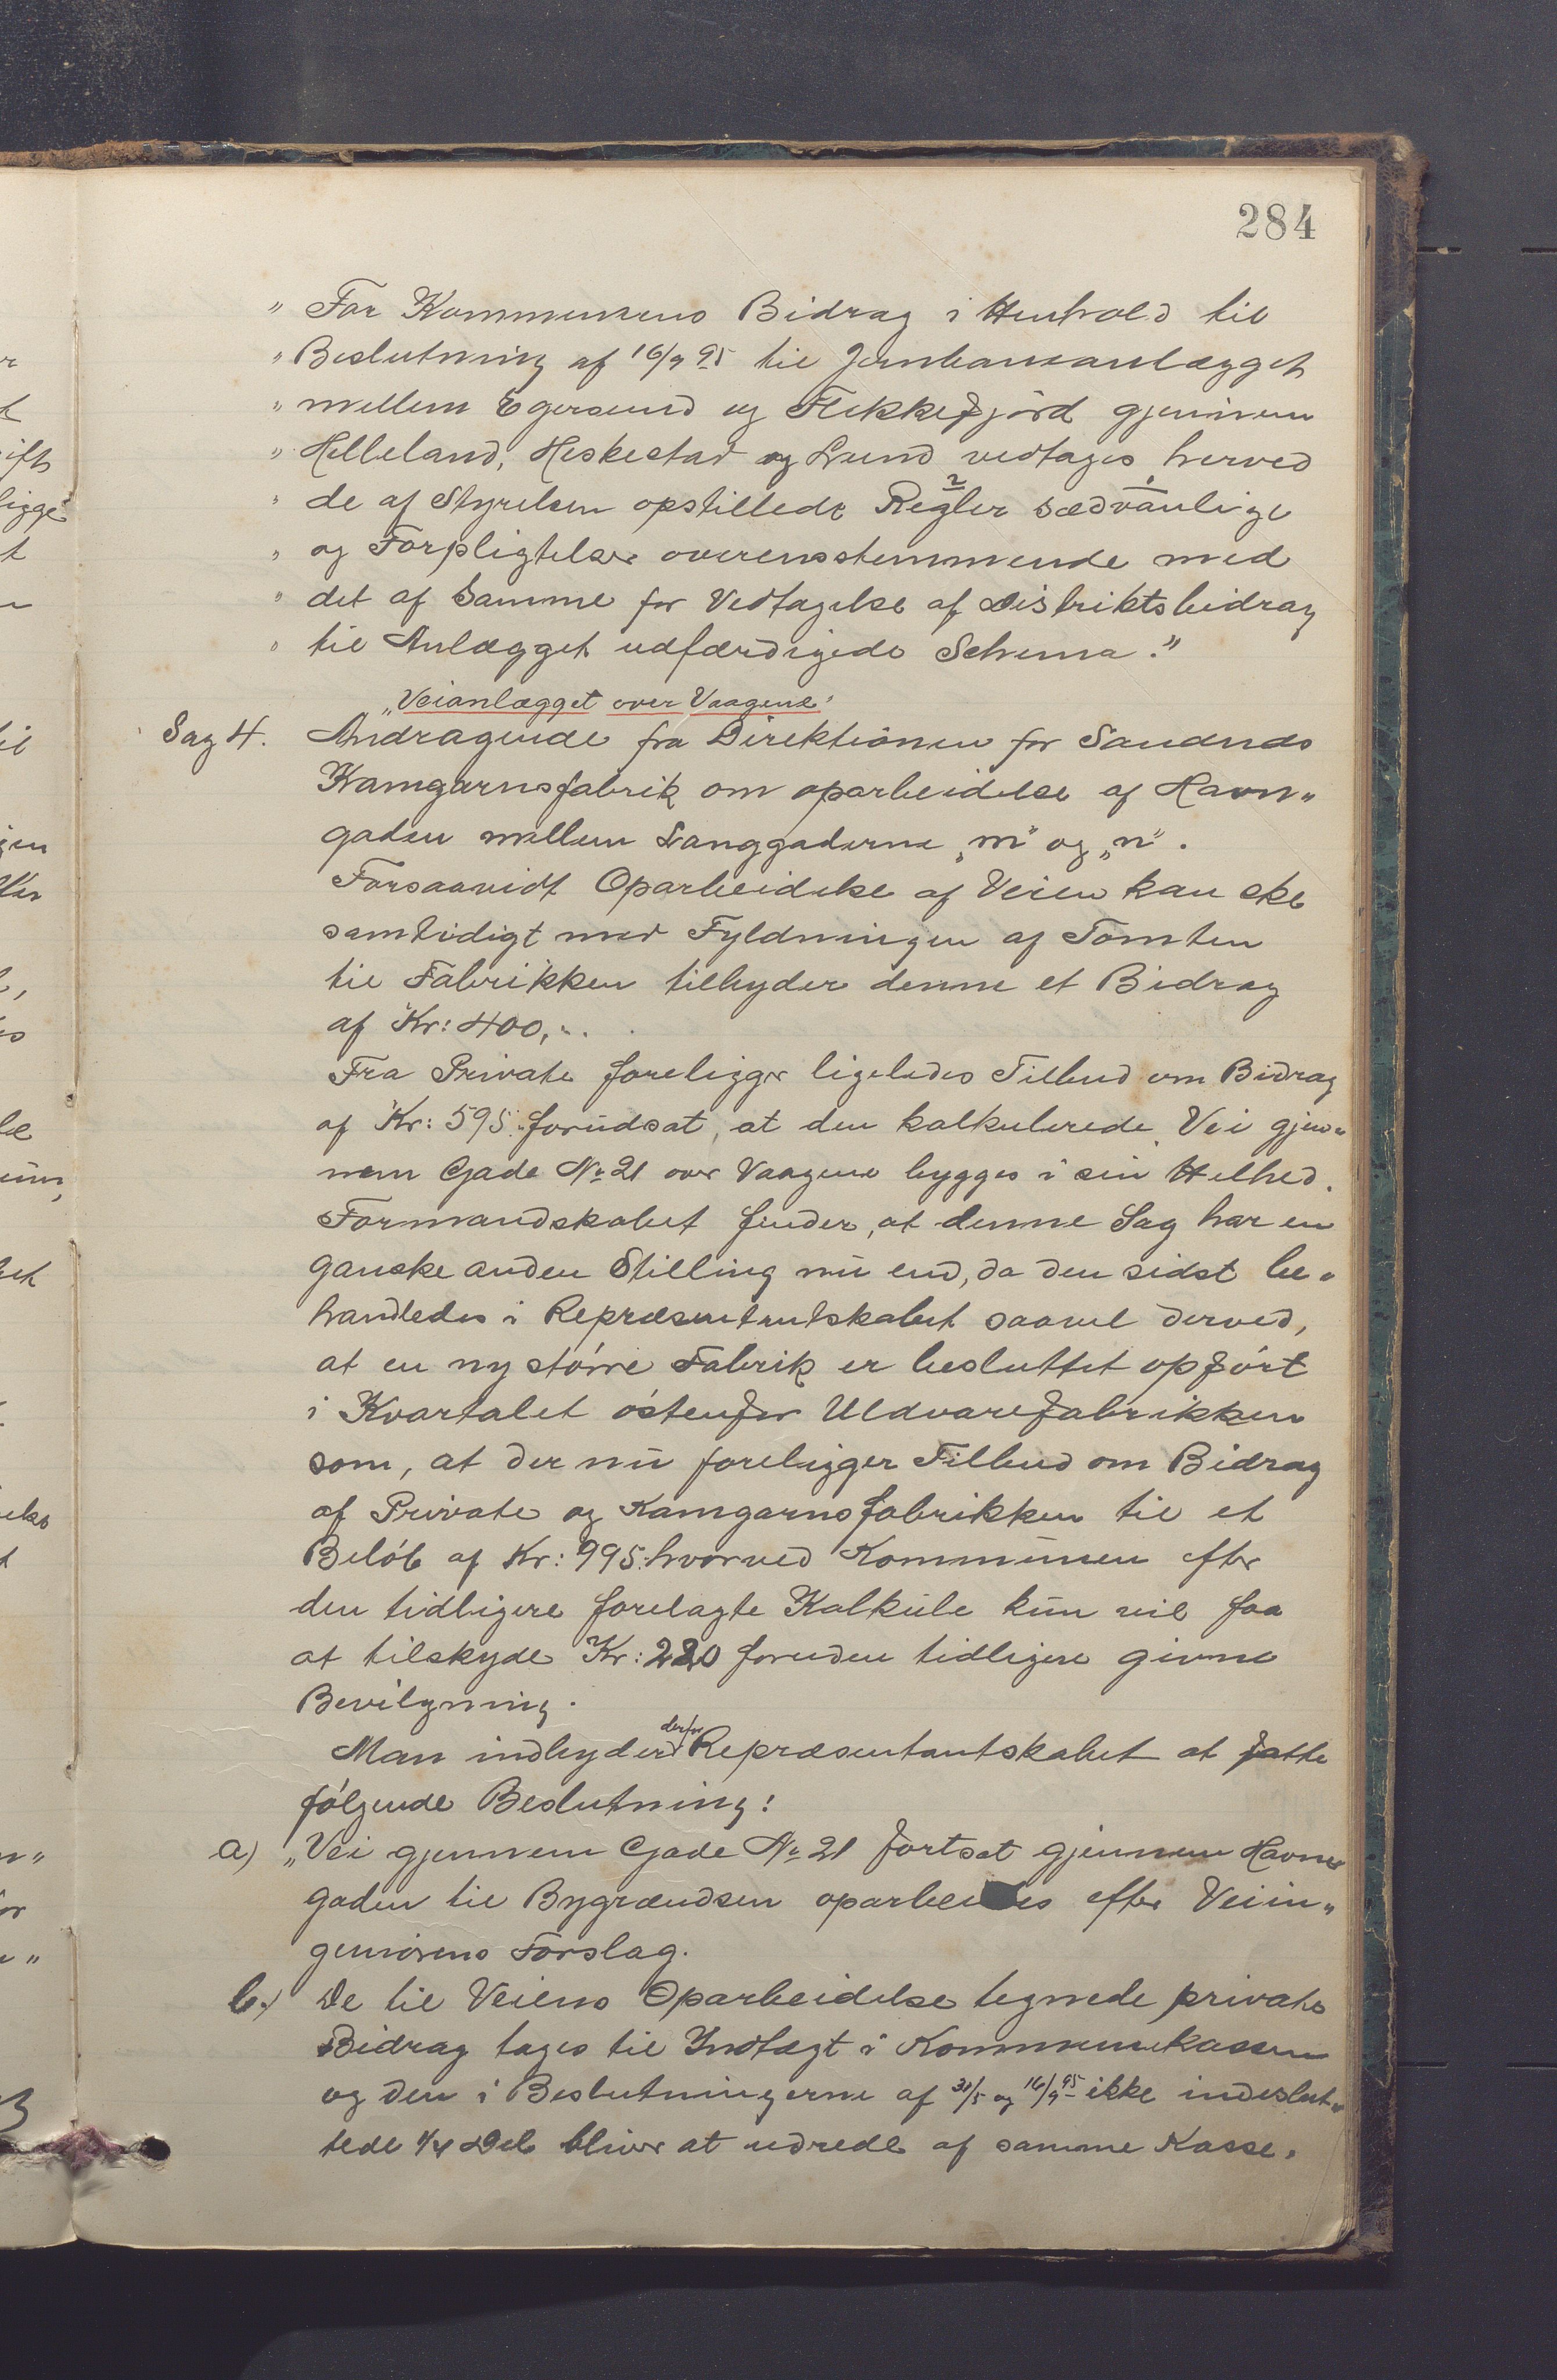 284
" For Kommunens Bidrag i Henhold til
" Beslutning af 16/9 95 til Jernbaneanlægget
" mellem Egersund og Flekkefjord gjennem
" Helleland, Heskestad og Lund vedtages herved
" de af Styrelsen opstillede Regler sædvanlige
" og Forpligtelser overensstemmende med
" det af Samme for Vedtagelse af Distriktsbidrag
" til Anlægget udfærdigede Schema."
„Veianlægget over Vaagene"
Sag 4. Andragende fra Direktionen for Sandnes
Kamgarnsfabrik om oparbeidelse af Havn"
gaden mellem Langgaderne „m" og „n".
Forsaavidt Oparbeidelse af Veien kan ske
samtidigt med Fyldningen af Tomten
til Fabrikken tilbyder denne et Bidrag
af Kr: 400,-.
Fra Private foreligger ligeledes Tilbud om Bidrag
af Kr: 595.- forudsat, at den kalkulerede Vei gjen"
nem Gade No 21 over Vaagene bygges i sin Helhed.
Formandskabet finder, at denne Sag har en
ganske anden Stilling nu end, da den sidst be"
handledes i Repræsentantskabet saavel derved,
at en ny større Fabrik er besluttet opført
i Kvartalet østenfor Uldvarefabrikken
som, at der nu foreligger Tilbud om Bidrag
af Private og Kamgarnsfabrikken til et
Beløb af Kr: 995.- hvorved Kommunen efter
den tidligere forelagte Kalkule kun vil faa
at tilskyde Kr: 220 foruden tidligere givne
Bevilgning.
Man indbyder derfor Repræsentantskabet at fatte
følgende Beslutning:
a) „Vei gjennem Gade No 21 fortsat gjennem Havne"
gaden til Bygrændsen oparbeides efter Veiin"
geniørens Forslag.
b.) De til Veiens Oparbeidelse tegnede private
Bidrag tages til Indtægt i Kommunekassen
og den i Beslutningerne af 31/5 og 16/9 95 ikke indeslut"
tede 1/4 Del bliver at udrede af samme Kasse.